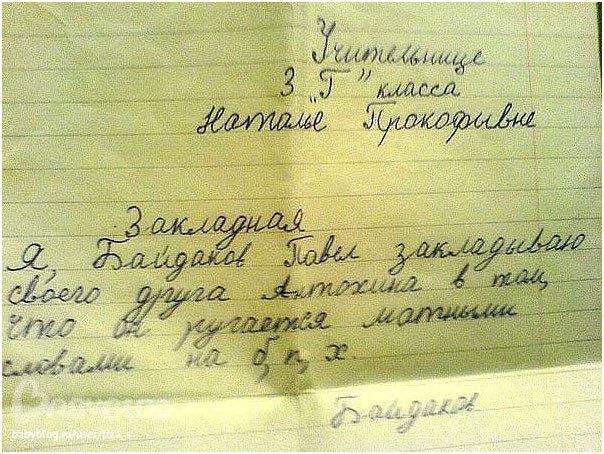 Учительнице
3 „Г” класса
Наталье Прокофивне
Закладная
Я, Байдаков Павел закладываю
своего друга Алтохина в том,
что он ругается матными
словами на б, п, х.
Байдаков